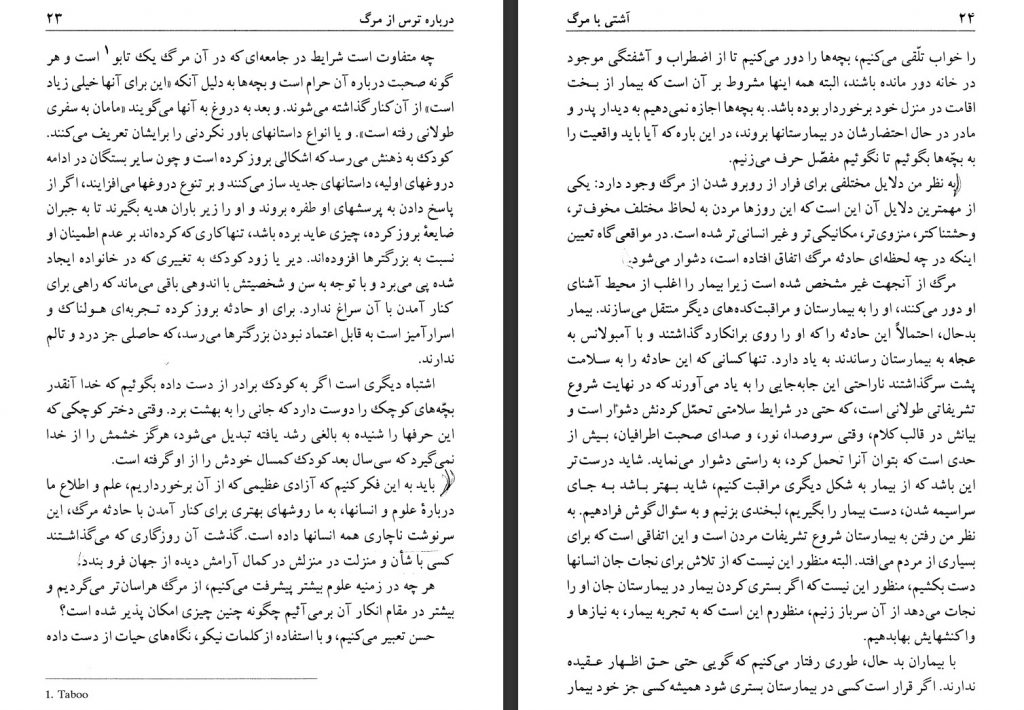 ۲۳
درباره ترس از مرگ
چه متفاوت است شرایط در جامعه‌ای که در آن مرگ یك تابو۱ است و هر
گونه صحبت درباره آن حرام است و بچه‌ها به دلیل آنکه «این برای آنها خیلی زیاد
است» از آن کنار گذاشته می‌شوند. و بعد به دروغ به آنها می‌گویند «مامان به سفری
طولانی رفته است». و یا انواع داستانهای باور نکردنی را برایشان تعریف می‌کنند.
کودك به ذهنش می‌رسد که اشکالی بروز کرده است و چون سایر بستگان در ادامه
دروغهای اولیه، داستانهای جدید ساز می‌کنند و بر تنوع دروغها می‌افزایند، اگر از
پاسخ دادن به پرسشهای او طفره بروند و او را زیر باران هدیه بگیرند تا به جبران
ضایعهٔ بروز کرده، چیزی عاید برده باشد، تنها کاری که کرده‌اند بر عدم اطمینان او
نسبت به بزرگترها افزوده‌اند. دیر یا زود کودك به تغییری که در خانواده ایجاد
شده پی می‌برد و با توجه به سن و شخصیتش با اندوهی باقی می‌ماند که راهی برای
کنار آمدن با آن سراغ ندارد. برای او حادثه بروز کرده تجربه‌ای هولناك و
اسرارآمیز است به قابل اعتماد نبودن بزرگترها می‌رسد، که حاصلی جز درد و تالم
ندارند.
اشتباه دیگری است اگر به کودك برادر از دست داده بگوئیم که خدا آنقدر
بچّه‌های کوچك را دوست دارد که جانی را به بهشت برد. وقتی دختر کوچکی که
این حرفها را شنیده به بالغی رشد یافته تبدیل می‌شود، هرگز خشمش را از خدا
نمی‌گیرد که سی‌سال بعد کودك کمسال خودش را از او گرفته است.
باید به این فکر کنیم که آزادی عظیمی که از آن برخورداریم، علم و اطلاع ما
دربارهٔ علوم و انسانها، به ما روشهای بهتری برای کنار آمدن با حادثه مرگ، این
سرنوشت ناچاری همه انسانها داده است. گذشت آن روزگاری که می‌گذاشتند
کسی با شأن و منزلت در منزلش در کمال آرامش دیده از جهان فرو بندد.
هر چه در زمینه علوم بیشتر پیشرفت می‌کنیم، از مرگ هراسان‌تر می‌گردیم و
بیشتر در مقام انکار آن برمی‌آئیم چگونه چنین چیزی امکان پذیر شده است؟
حسن تعبیر می‌کنیم، و با استفاده از کلمات نیکو، نگاه‌های حیات از دست داده
1. Taboo
۲۴
آشتی با مرگ
را خواب تلّقی می‌کنیم، بچه‌ها را دور می‌کنیم تا از اضطراب و آشفتگی موجود
در خانه دور مانده باشند، البته همه اینها مشروط بر آن است که بیمار از بخت
اقامت در منزل خود برخوردار بوده باشد. به بچه‌ها اجازه نمی‌دهیم به دیدار پدر و
مادر در حال احتضارشان در بیمارستانها بروند، در این باره که آیا باید واقعیت را
به بچّه‌ها بگوئیم تا نگوئیم مفصّل حرف می‌زنیم.
به نظر من دلایل مختلفی برای فرار از روبرو شدن از مرگ وجود دارد: یکی
از مهمترین دلایل آن این است که این روزها مردن به لحاظ مختلف مخوف‌تر،
وحشتناکتر، منزوی‌تر، مکانیکی‌تر و غیر انسانی‌تر شده است. در مواقعی‌گاه تعیین
اینکه در چه لحظه‌ای حادثه مرگ اتفاق افتاده است، دشوار می‌شود.
مرگ از آنجهت غیر مشخص شده است زیرا بیمار را اغلب از محیط آشنای
او دور می‌کنند، او را به بیمارستان و مراقبت‌کده‌های دیگر منتقل می‌سازند. بیمار
بدحال، احتمالاً این حادثه را که او را روی برانکارد گذاشتند و با آمبولانس به
عجاه به بیمارستان رساندند به یاد دارد. تنها کسانی که این حادثه را به سلامت
پشت سر گذاشتند ناراحتی این جابه‌جایی را به یاد می‌آورند که در نهایت شروع
تشریفاتی طولانی است، که حتی در شرایط سلامتی تحمّل کردنش دشوار است و
بیانش در قالب کلام، وقتی سروصدا، نور، و صدای صحبت اطرافیان، بیش از
حدی است که بتوان آنرا تحمل کرد، به راستی دشوار می‌نماید. شاید درست‌تر
این باشد که از بیمار به شکل دیگری مراقبت کنیم، شاید بهتر باشد به جای
سراسیمه شدن، دست بیمار را بگیریم، لبخندی بزنیم و به سئوال گوش فرادهیم. به
نظر من رفتن به بیمارستان شروع تشریفات مردن است و این اتفاقی است که برای
بسیاری از مردم می‌افتد. البته منظور این نیست که از تلاش برای نجات جان انسانها
دست بکشیم، منظور این نیست که اگر بستری کردن بیمار در بیمارستان جان او را
نجات می‌دهد از آن سرباز زنیم، منظورم این است که به تجربه بیمار، به نیازها و
واکنشهایش بهابدهیم.
با بیماران بد حال، طوری رفتار می‌کنیم که گویی حتی حق اظهار عقیده
ندارند. اگر قرار است کسی در بیمارستان بستری شود همیشه کسی جز خود بیمار